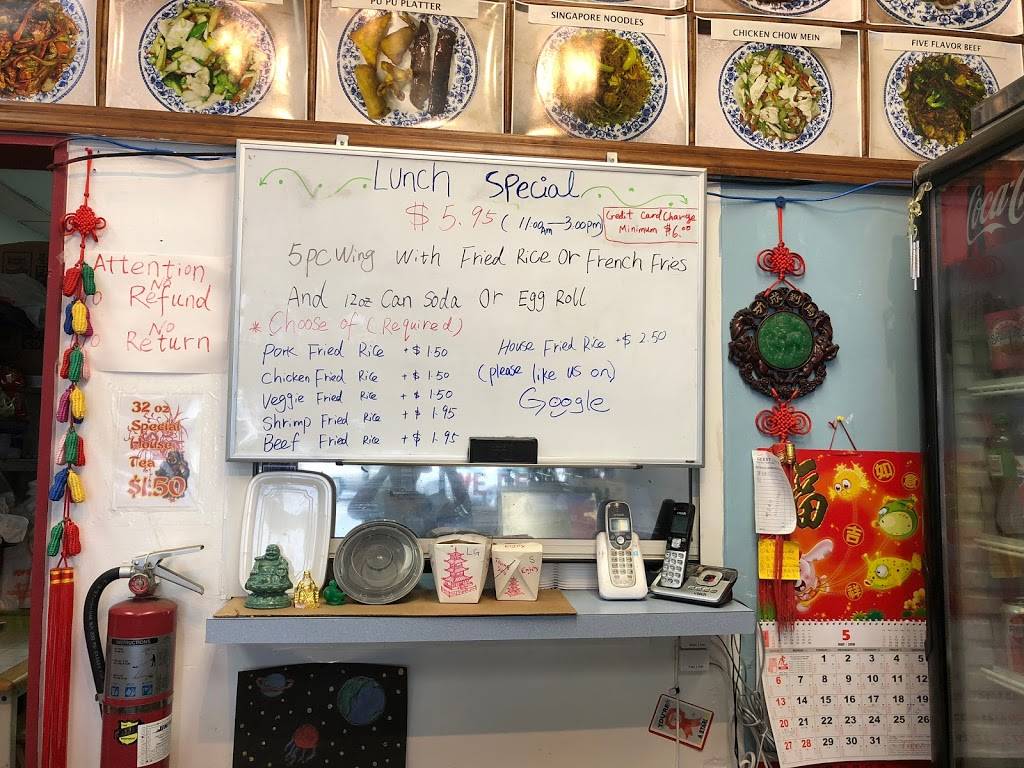 PU PU PLATTER
SINGAPORE NOODLES
CHICKEN CHOW MEIN
FIVE FLAVOR BEEF
Lunch Special
$5.95 (11:00am—3:00pm)
Credit Card Charge
Minimum $6.00
5pc Wing With Fried Rice Or French Fries
And 12oz Can Soda Or Egg Roll
* Choose of (Required)
Pork Fried Rice +$1.50
House Fried Rice +$2.50
Chicken Fried Rice +$1.50
(please like us on)
Veggie Fried Rice +$1.50
Google
Shrimp Fried Rice +$1.95
Beef Fried Rice +$1.95
Attention
No
Refund
No
Return
32 oz
Special
House
Tea
$1.50
Coca-Co
INSTRUCTIONS
LG
Enjoy
福
如意
吉
祥
5
1 2 3 4 5
6 7 8 9 10 11 12
13 14 15 16 17 18 19
20 21 22 23 24 25 26
27 28 29 30 31